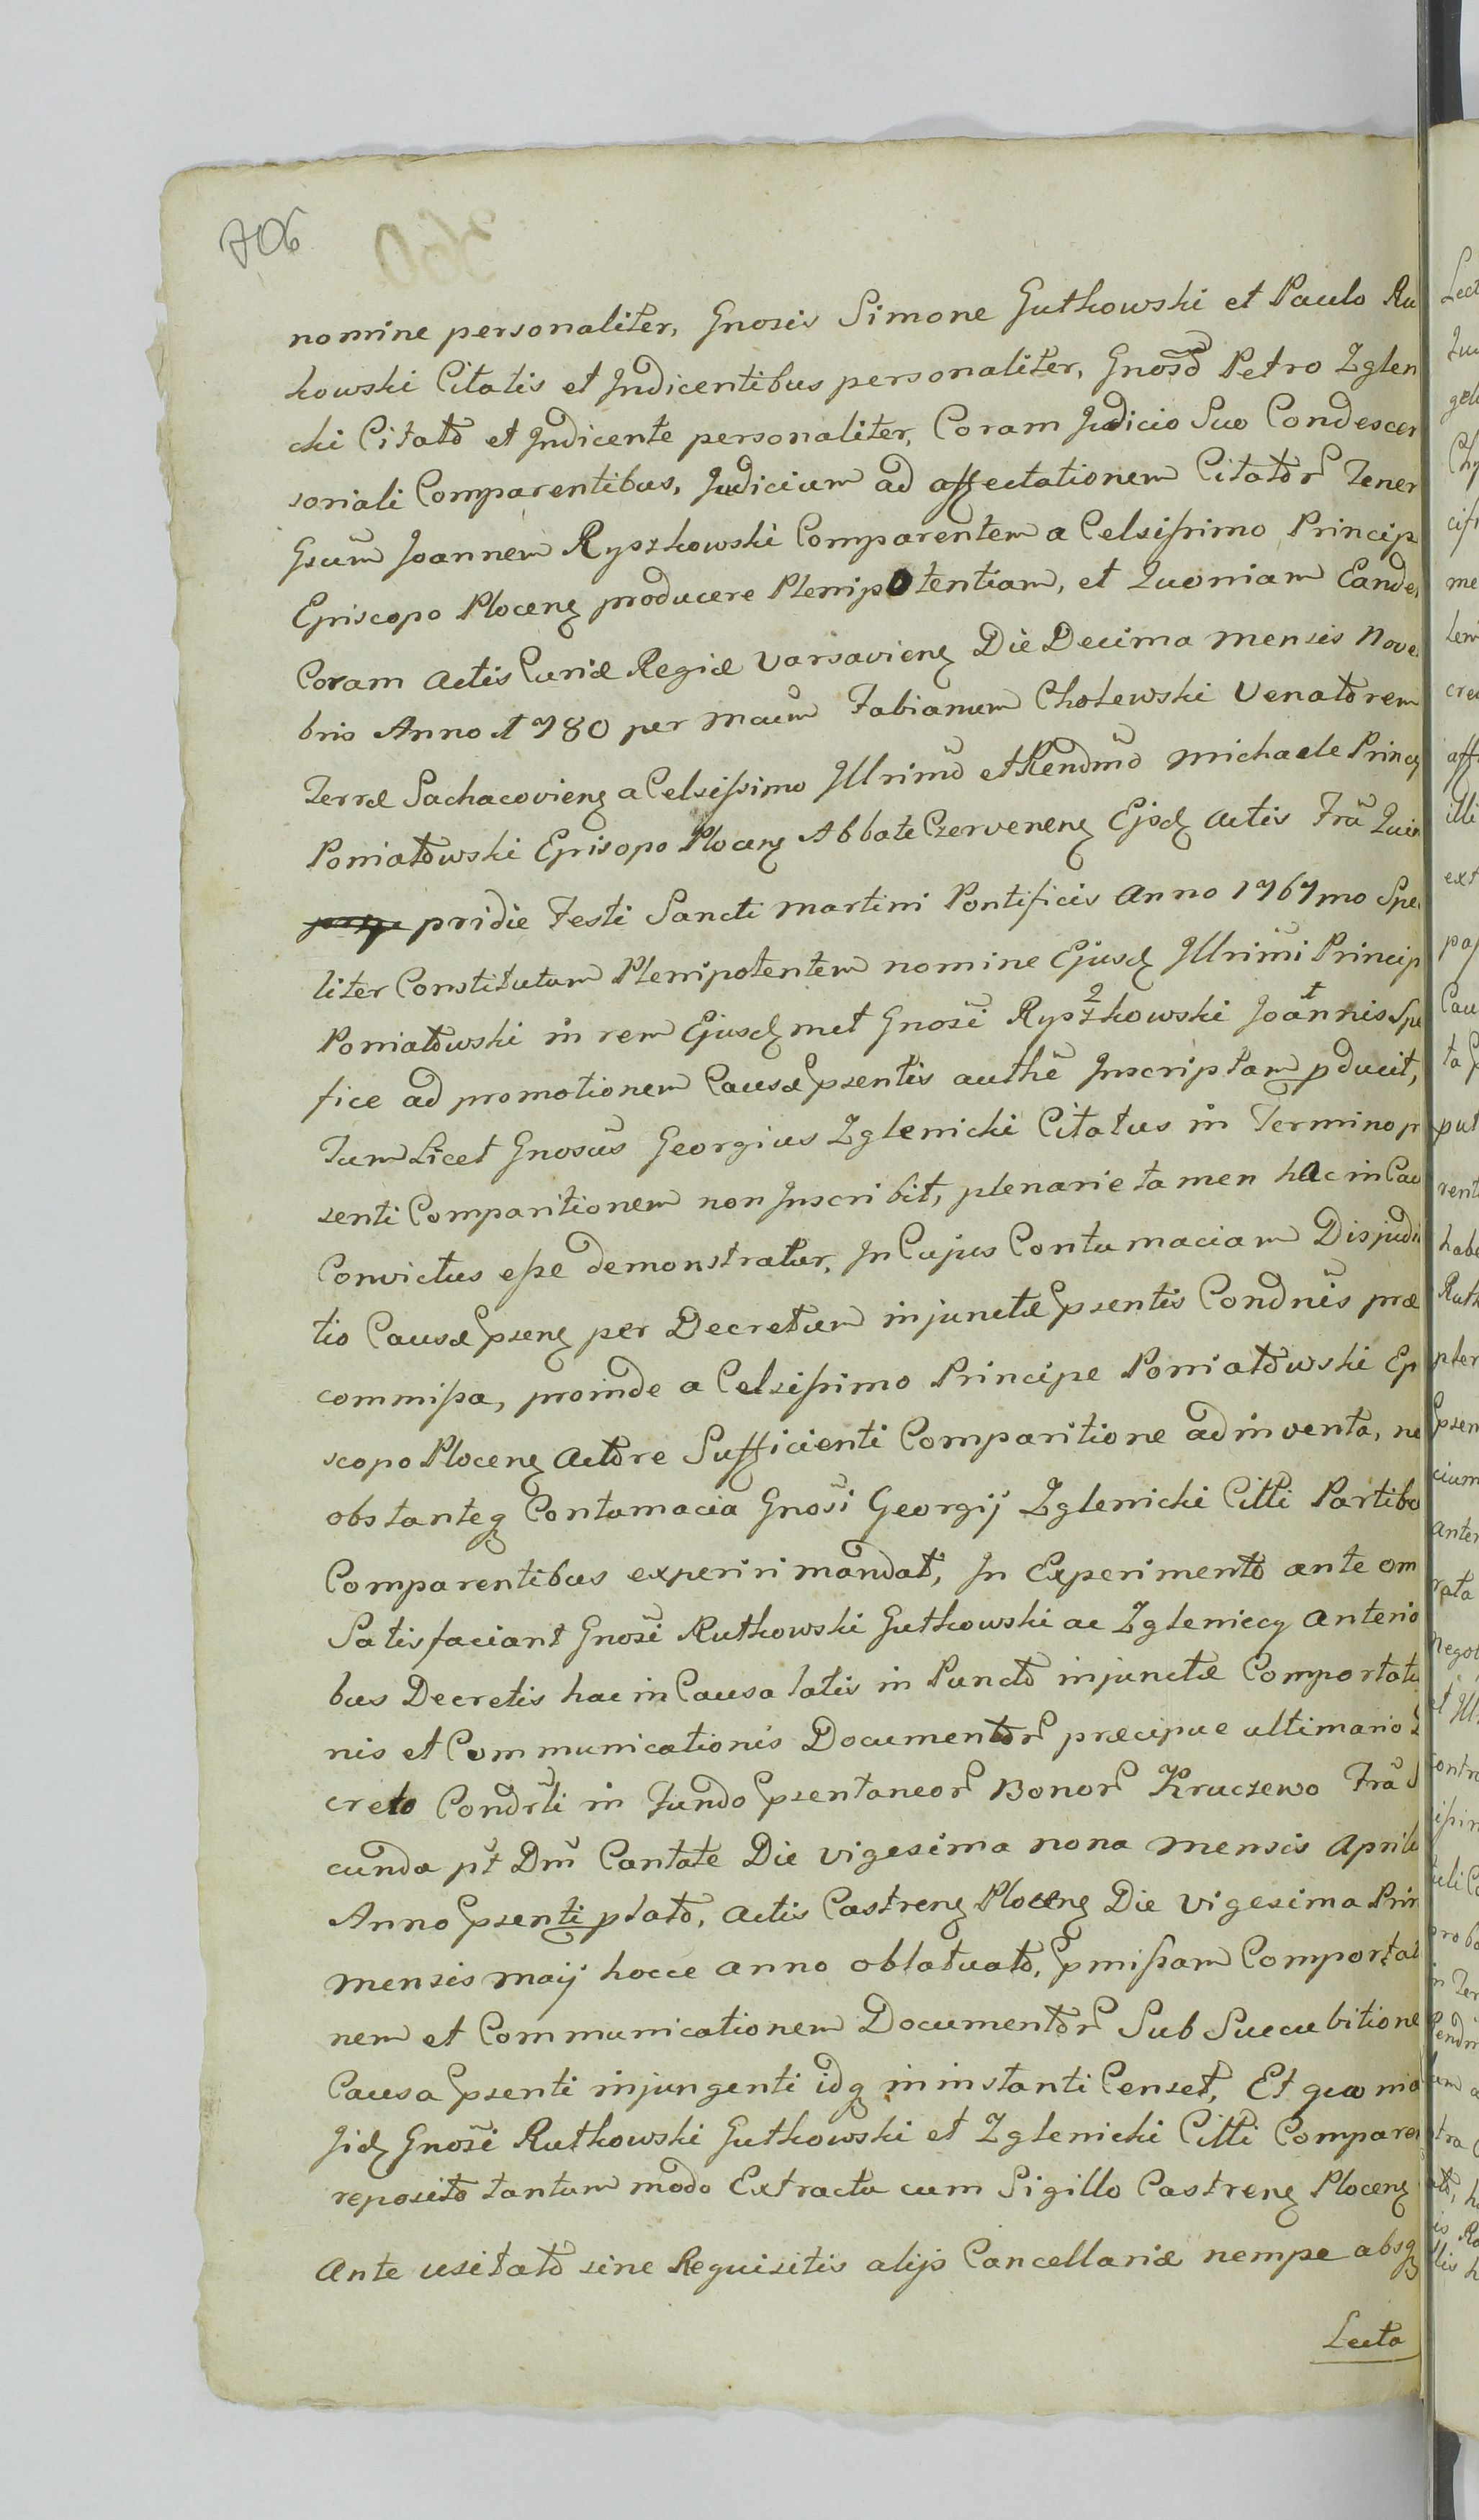 706
360
nomine personaliter, Gnosis Simone Gutkowski et Paulo Ru
kowski Citatis et Indicentibus personaliter, Gnoso Petro Zglen
cki Citato et Indicente personaliter, Coram Judicio Suo Condescen
soriali Comparentibus, Judicium ad affectationem Citator Tener
Gsum Joannem Ryszkowski Comparentem a Celsissimo Princip
Episcopo Plocenz producere Plenipotentiam, et Quoniam Eande
Coram Actis Curiæ Regiæ Varsavienz Die Decima mensis Nove
bris Anno 1780 per Mcum Fabianum Cholewski Venatorem
Terræ Sachacovienz a Celsissimo Illrimo et Rendmo Michaele Princi
Poniatowski Episopo Plocenz Abbate Czervenenz Ejsdq Actis Fra Quin
pridie Festi Sancti Martini Pontificis Anno 1767mo Spe
liter Constitutum Plenipotentem nomine Ejusdq Illrimi Princip
Poniatowski in rem Ejusdqmet Gnosi Ryszkowski Joannis Spe
fice ad promotionem Causæ psentis authe Inscriptam pducit,
Tum Licet Gnosus Georgius Zglenicki Citatus in Termino pr
senti Comparitionem non Inscribit, plenarie tamen hac in Cau
Convictus esse demonstratur, In Cujus Contumaciam Disjudi
tio Causæ psenz per Decretum injunctæ psentis Condnis præ
commissa, proinde a Celsissimo Principe Poniatowski Ep
scopo Plocenz Actore Sufficienti Comparitione adinventa, no
obstanteq Contumacia Gnosi Georgij Zglenicki Citti Partibu
Comparentibus experiri mandat, In Experimento ante om
Satisfaciant Gnosi Rutkowski Gutkowski ac Zglenieccy Anterio
bus Decretis hac in Causa latis in Puncto injunctæ Comportatio
nis et Communicationis Documentor præcipue ultimario
creto Condrli in Fundo psentaneor Bonor Kruczewo Fra
cunda pt Dm Cantate Die vigesima nona mensis Aprilis
Anno psenti plato, Actis Castrenz Plocenz Die Vigesima Prim
mensis Maij hocce anno oblatuato, pmissam Comportat
nem et Communicationem Documentor Sub Succubitione
Causa psenti injungenti idq in instanti Censet, Et quonia
Jidq Gnosi Rutkowski Gutkowski et Zglenicki Citti Comparen
reposito tantum modo Extractu cum Sigillo Castrenz Plocenz
Ante usitato sine Requisitis alijs Cancellariæ nempe absq
Lecta